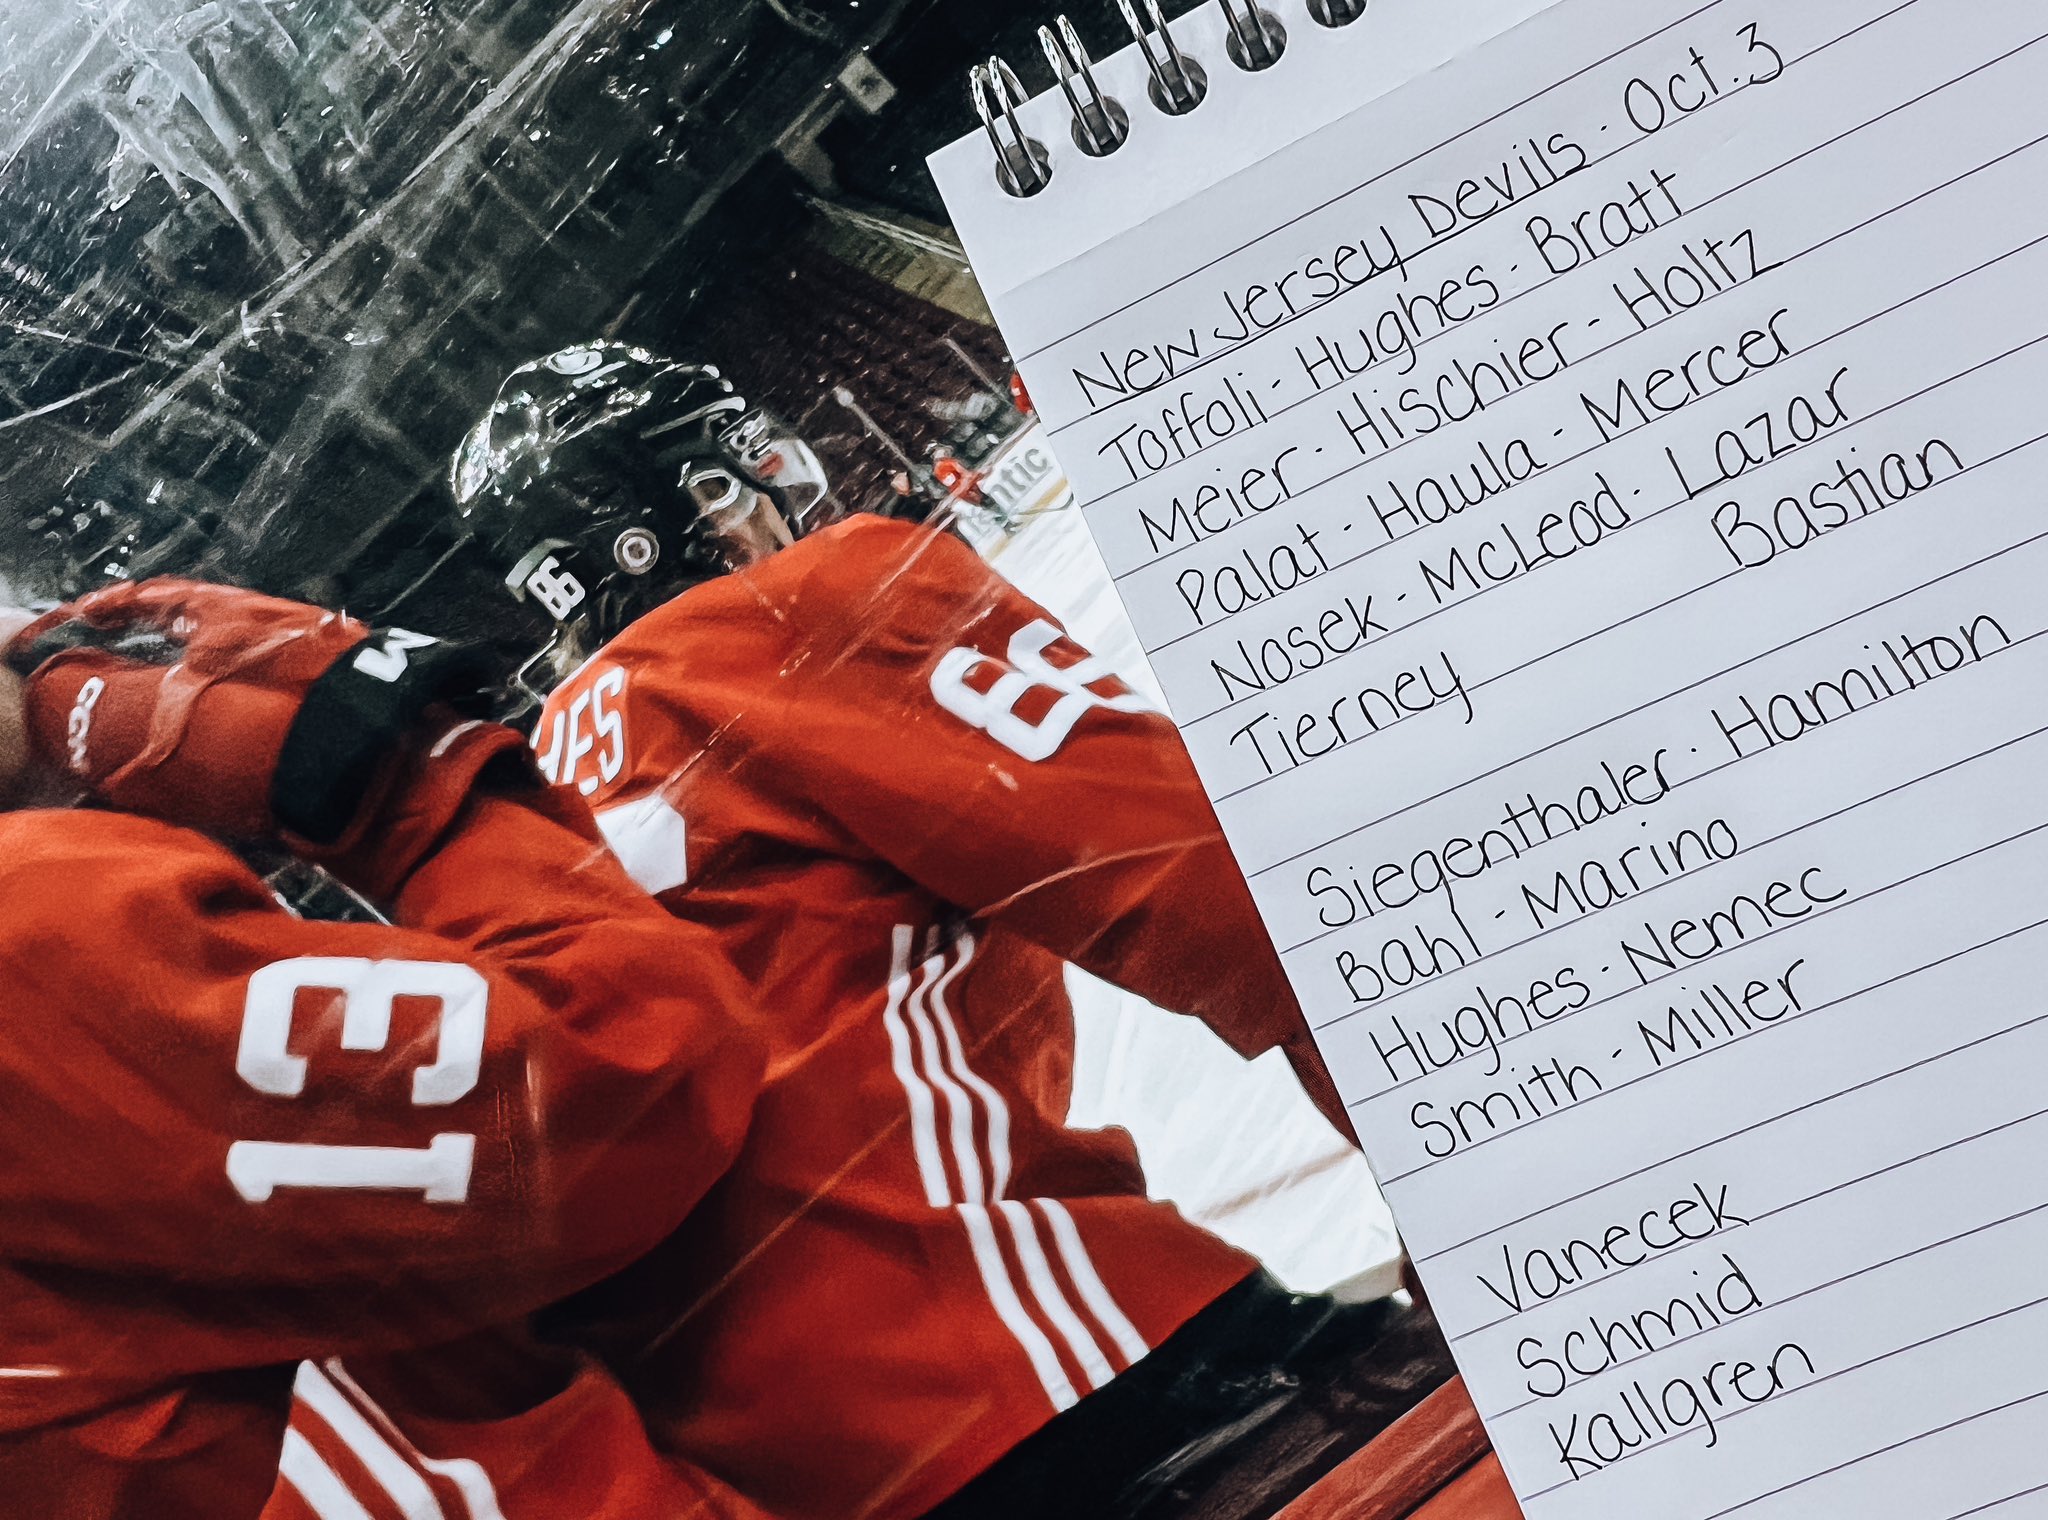 New Jersey Devils · Oct. 3
Toffoli - Hughes - Bratt
Meier - Hischier - Holtz
Palat - Haula - Mercer
Nosek - McLeod - Lazar
Tierney Bastian
Siegenthaler - Hamilton
Bahl - Marino
Hughes - Nemec
Smith - Miller
Vanecek
Schmid
Kallgren
86
HES
86
CCM
13